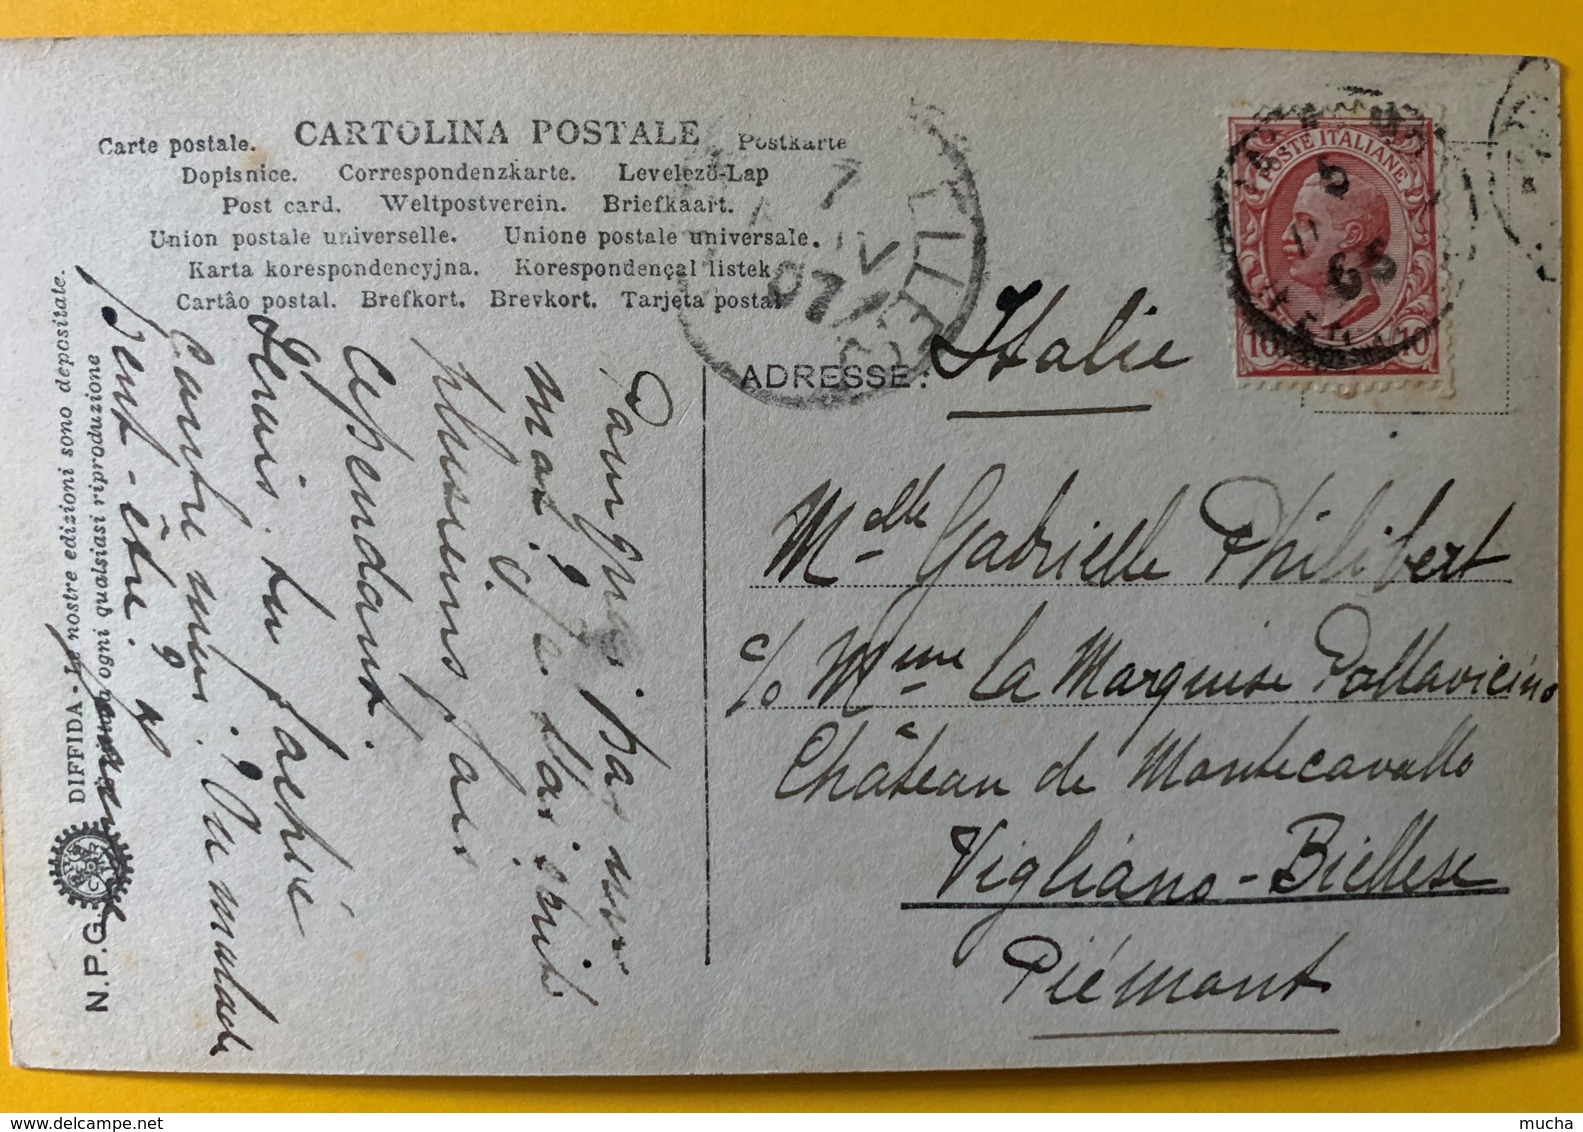 Carte postale. CARTOLINA POSTALE Postkarte
Dopisnice. Correspondenzkarte. Levelező-Lap
Post card. Weltpostverein. Briefkaart.
Union postale universelle. Unione postale universale.
Karta korespondencyjna. Korespondençal listek
Cartâo postal. Brefkort. Brevkort. Tarjeta postal
7
IV
07
POSTE ITALIANE
10 10
ADRESSE:
Italie
Melle Gabrielle Philibert
c/o Mme La Marquise Pallavicino
Château de Montecavallo
Vigliano-Biellese
Piémont
Pourquoi pas
mas? Je t'ai écrit
plusieurs fois
Cependant.
Serais-tu fachée
Contre moi? Ou malade
peut-être?
DIFFIDA - Le nostre edizioni sono depositate.
ogni qualsiasi riproduzione
N. P. G.
mucha
delcampe.net